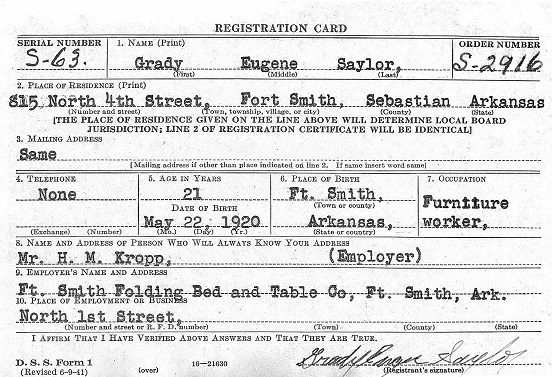 REGISTRATION CARD
SERIAL NUMBER 1. NAME (Print) ORDER NUMBER
S-63. Grady Eugene Saylor, S-2916
(First) (Middle) (Last)
2. PLACE OF RESIDENCE (Print)
815 North 4th Street, Fort Smith, Sebastian Arkansas
(Number and street) (Town, township, village, or city) (County) (State)
[THE PLACE OF RESIDENCE GIVEN ON THE LINE ABOVE WILL DETERMINE LOCAL BOARD
JURISDICTION; LINE 2 OF REGISTRATION CERTIFICATE WILL BE IDENTICAL]
3. MAILING ADDRESS
Same
[Mailing address if other than place indicated on line 2. If same insert word same]
4. TELEPHONE 5. AGE IN YEARS 6. PLACE OF BIRTH 7. OCCUPATION
None 21 Ft. Smith, Furniture
DATE OF BIRTH (Town or county)
May 22, 1920 Arkansas, worker,
(Exchange) (Number) (Mo.) (Day) (Yr.) (State or country)
8. NAME AND ADDRESS OF PERSON WHO WILL ALWAYS KNOW YOUR ADDRESS
Mr. H. M. Kropp, (Employer)
9. EMPLOYER'S NAME AND ADDRESS
Ft. Smith Folding Bed and Table Co, Ft. Smith, Ark.
10. PLACE OF EMPLOYMENT OR BUSINESS
North 1st Street,
(Number and street or R. F. D. number) (Town) (County) (State)
I AFFIRM THAT I HAVE VERIFIED ABOVE ANSWERS AND THAT THEY ARE TRUE.
D. S. S. Form 1 Grady Eugene Saylor
(Revised 6-9-41) (over) 16—21630 (Registrant's signature)